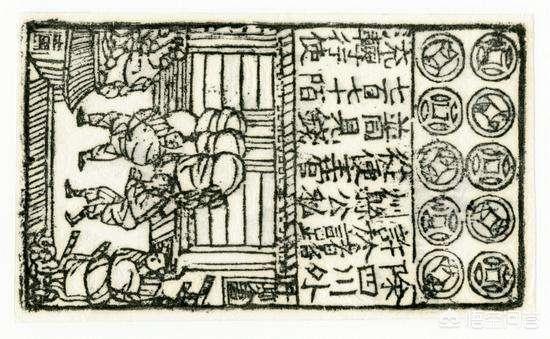 除四川外
許於諸路
州縣公私
從便主管
並同見錢
七百七十陌
流轉行使
千斯倉
悟空问答